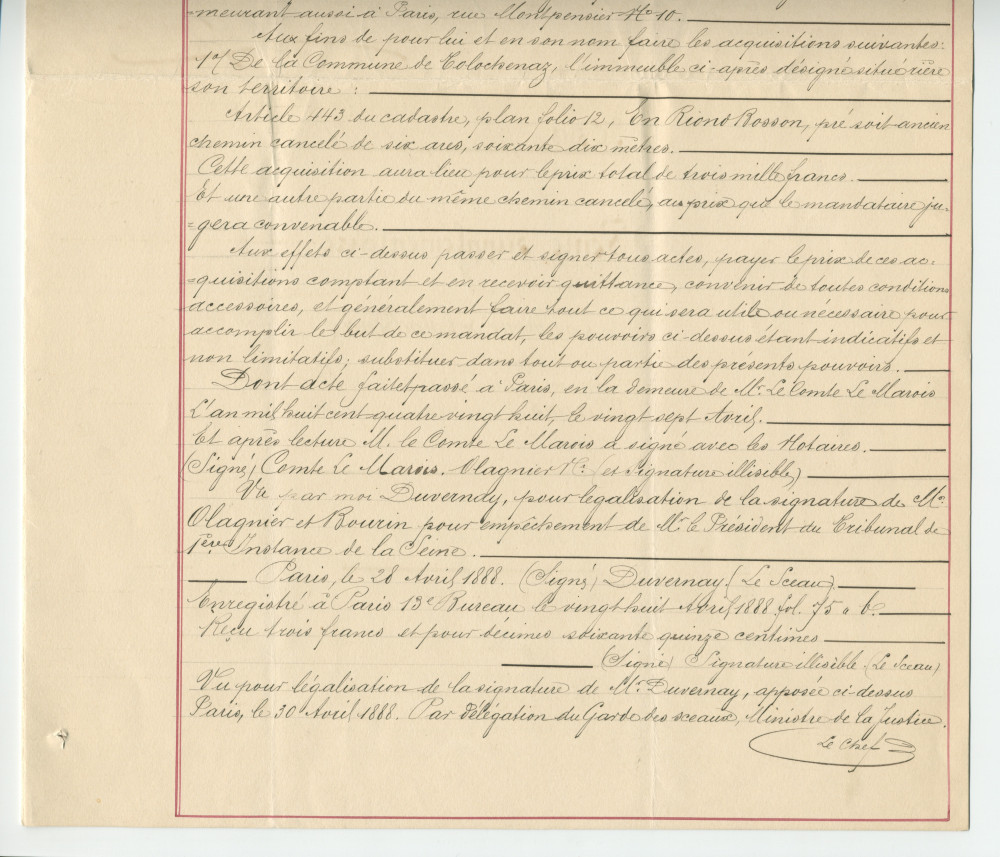 =meurant aussi à Paris, rue Montpensier No 10.
Aux fins de pour lui et en son nom faire les acquisitions suivantes:
1o/ De la Commune de Tolochenaz, l'immeuble ci-après désigné situé rière
son territoire :
Article 443 du cadastre, plan folio 12, En Riond Bosson, pré soit ancien
chemin cancelé de six ares, soixante dix mètres.
Cette acquisition aura lieu pour le prix total de trois mille francs.
Et une autre partie du même chemin cancelé, au prix que le mandataire ju-
=gera convenable.
Aux effets ci-dessus passer et signer tous actes, payer le prix de ces ac=
=quisitions comptant et en recevoir quittance, convenir de toutes conditions
accessoires, et généralement faire tout ce qui sera utile ou nécessaire pour
accomplir le but de ce mandat, les pouvoirs ci-dessus étant indicatifs et
non limitatifs; substituer dans tout ou partie des présents pouvoirs.
Dont acte fait et passé à Paris, en la demeure de Mr. Le Comte Le Marois
L'an mil huit cent quatre vingt huit, le vingt sept Avril.
Et après lecture M. le Comte Le Marois a signé avec les Notaires.
(Signé) Comte Le Marois. Olagnier Nre. et Signature illisible)
Vu par moi Duvernay, pour légalisation de la signature de Mes.
Olagnier et Bourin pour empêchement de Mr. le Président du Tribunal de
1ère Instance de la Seine.
Paris, le 28 Avril 1888. (Signé) Duvernay (Le Sceau).
Enregistré à Paris 13e Bureau le vingt huit Avril 1888. fol. 75 a 6.
Reçu trois francs et pour décimes soixante quinze centimes
(Signé) Signature illisible (Le Sceau)
Vu pour légalisation de la signature de Mr. Duvernay, apposée ci-dessus
Paris, le 30 Avril 1888. Par délégation du Garde des sceaux, Ministre de la Justice.
Le Chef